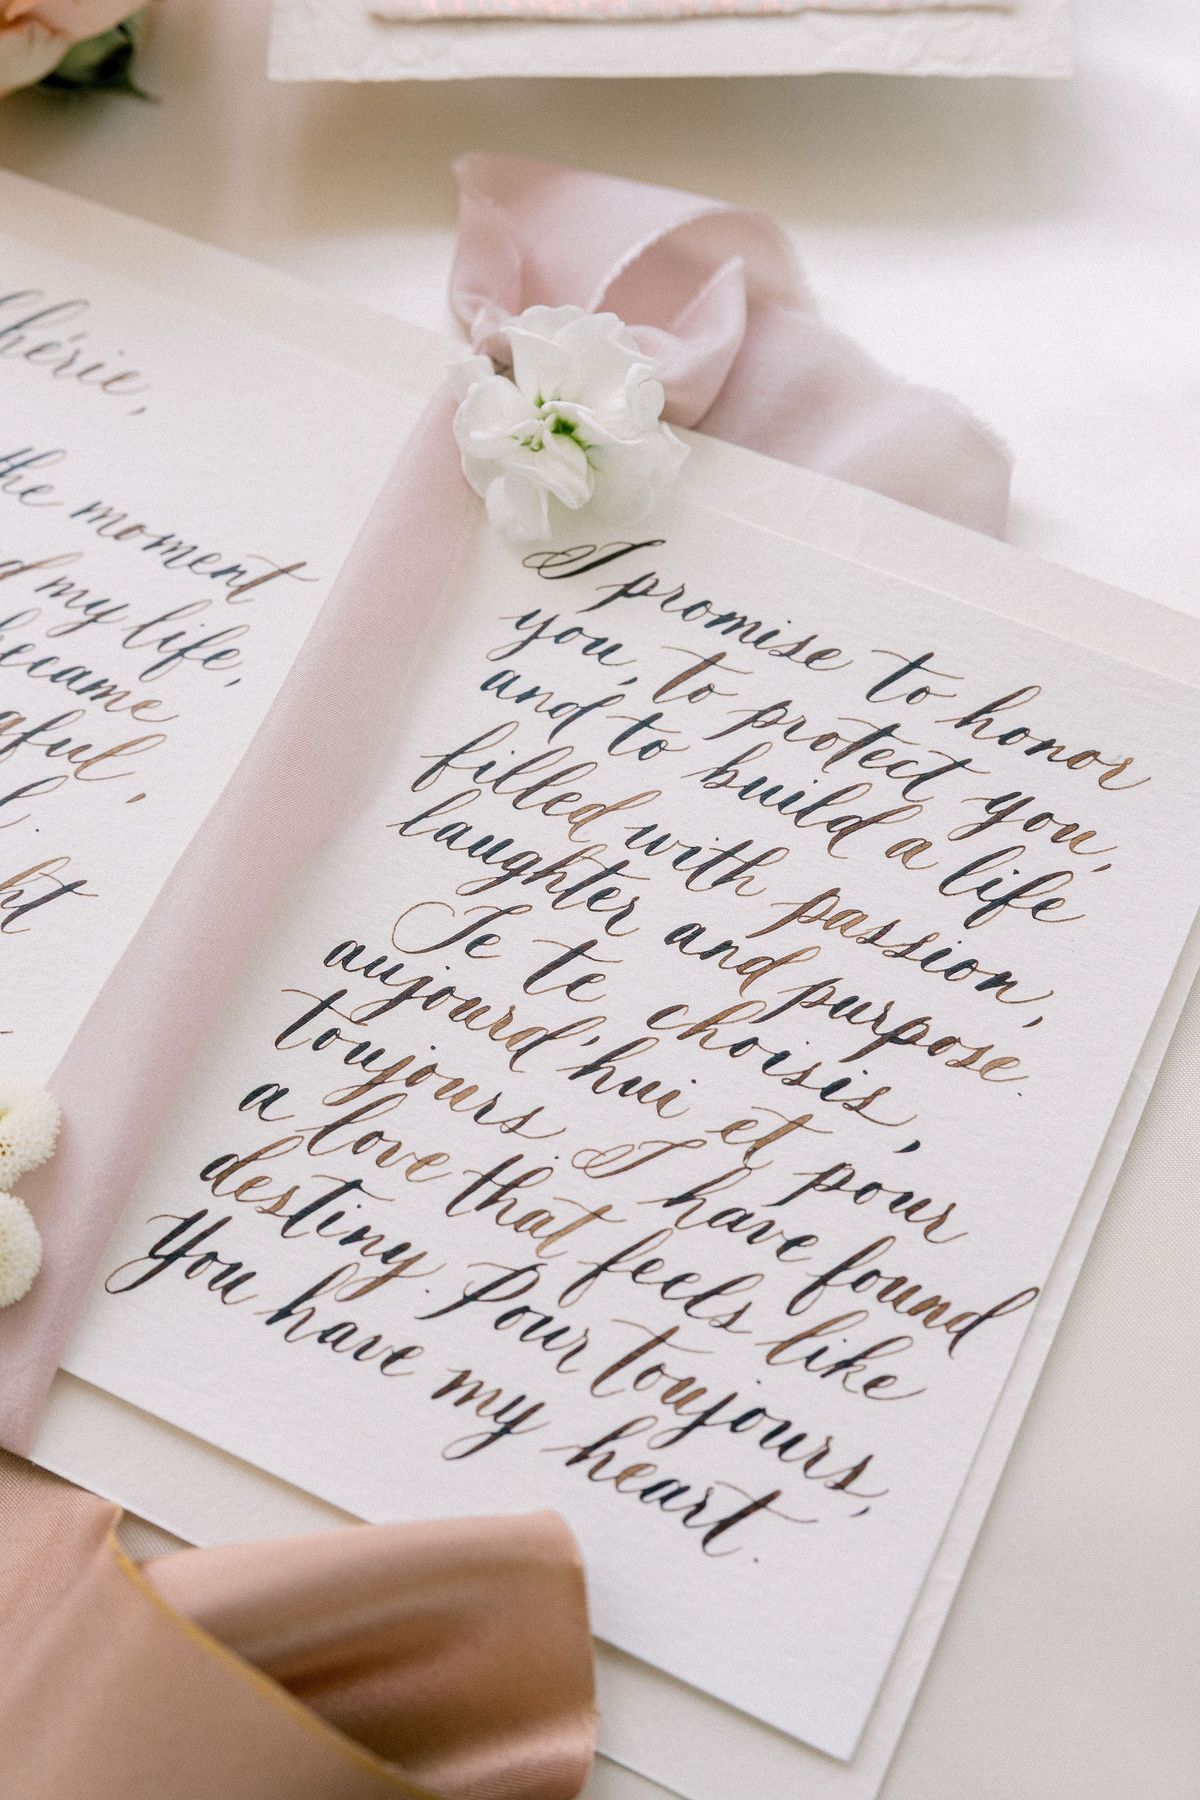 chérie,
the moment
my life,
became
I promise to honor
you, to protect you,
and to build a life
filled with passion,
laughter and purpose.
Je te choisis,
aujourd'hui et pour
toujours. I have found
a love that feels like
destiny. Pour toujours,
You have my heart.